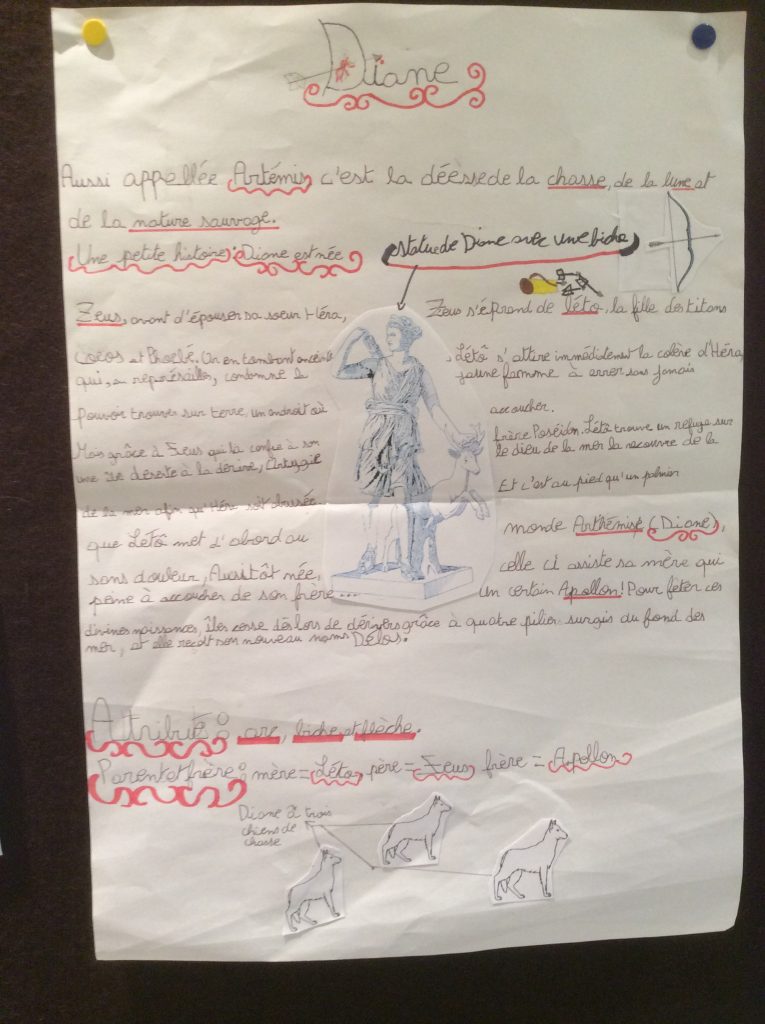 Diane
Aussi appellée Artémis c'est la déèsse de la chasse, de la lune et
de la nature sauvage.
Une petite histoire : Diane est née
statue de Diane avec une biche
Zeus, avant d'épouser sa soeur Héra, Zeus s'éprand de léto, la fille des titans
Coéos et Phoebé. Or en tombant enceinte, Létô s'attire immédidement la colère d'Héra,
qui, en représailles, condamne la jeune femme à errer sans jamais
pouvoir trouver sur terre, un endroit où accoucher.
Mais grâce à Zeus qui la confie à son frère Poséidon, Létô trouve un refuge sur
une île déserte à la dérive, Ortygie le dieu de la mer la recouvre de la
de la mer afin qu'Héra soit Et c'est au pied qu'un palmier
que Létô met d'abord au monde Arthémise (Diane),
sans douleur, Aussitôt née, celle ci assiste sa mère qui
peine à accoucher de son frère... un certain Apollon! Pour fêter ces
divines naissances, îles cesse dés lors de dérivers grâce à quatre pilier surgis du fond des
mer, et elle reçoit son nouveau noms Délos.
Attributs : arc, biche et flèche.
Parent et frère : mère = Léto, père = Zeus, frère = Apollon
Diane à trois
chiens de
chasse